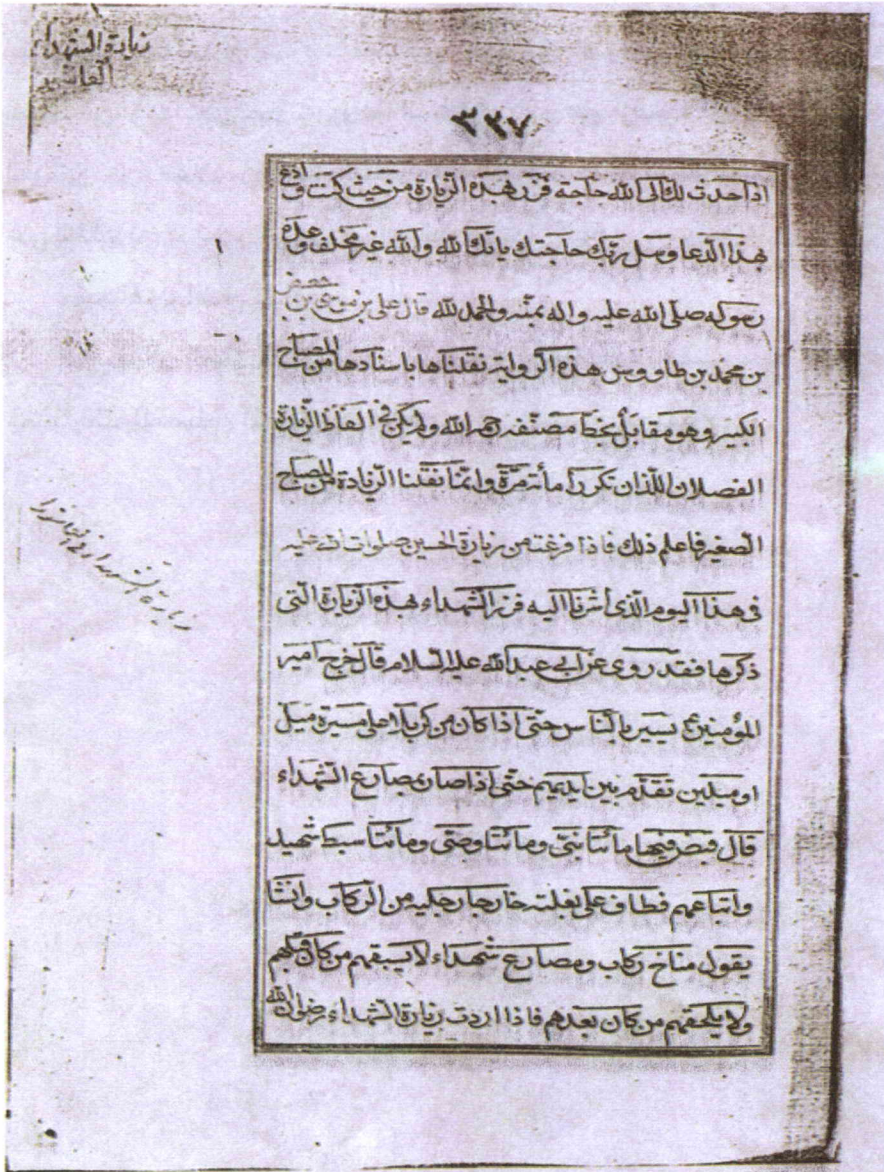 زيارة الشهداء
٣٣٧
اذا حدث لك الى الله حاجة فزر بهذه الزيارة من حيث كنت وادع
بهذا الدعا وسل ربك حاجتك ياتك الله والله غير مخلف وعده
رسوله صلى الله عليه واله بمنه والحمد لله قال على بن موسى بن جعفر
بن محمد بن طاووس هذه الرواية نقلناها باسنادها من المصباح
الكبير وهو مقابل بخط مصنفه رحمه الله ولم يكن فى الفاظ الزيارة
الفصلان اللذان تكررا مأة مرة وانما نقلنا الزيادة من المصباح
الصغير فاعلم ذلك فاذا فرغت من زيارة الحسين صلوات الله عليه
فى هذا اليوم الذى اشرنا اليه فزر الشهداء بهذه الزيارة التى
ذكرها فقد روى عن ابى عبد الله عليه السلام قال خرج امير
المؤمنين ع يسير بالناس حتى اذا كان من كربلا على مسيرة ميل
او ميلين تقدم بين ايديهم حتى اذا صار بمصارع الشهداء
قال قبض فيها مائتا نبى ومائتا وصى ومائتا سبط شهيد
واتباعهم فطاف على بغلته خارجا رجليه من الركاب وانشا
يقول مناخ ركاب ومصارع شهداء لا يسبقهم من كان قبلهم
ولا يلحقهم من كان بعدهم فاذا اردت زيارة الشهداء رضوان الله
زيارة الشهداء